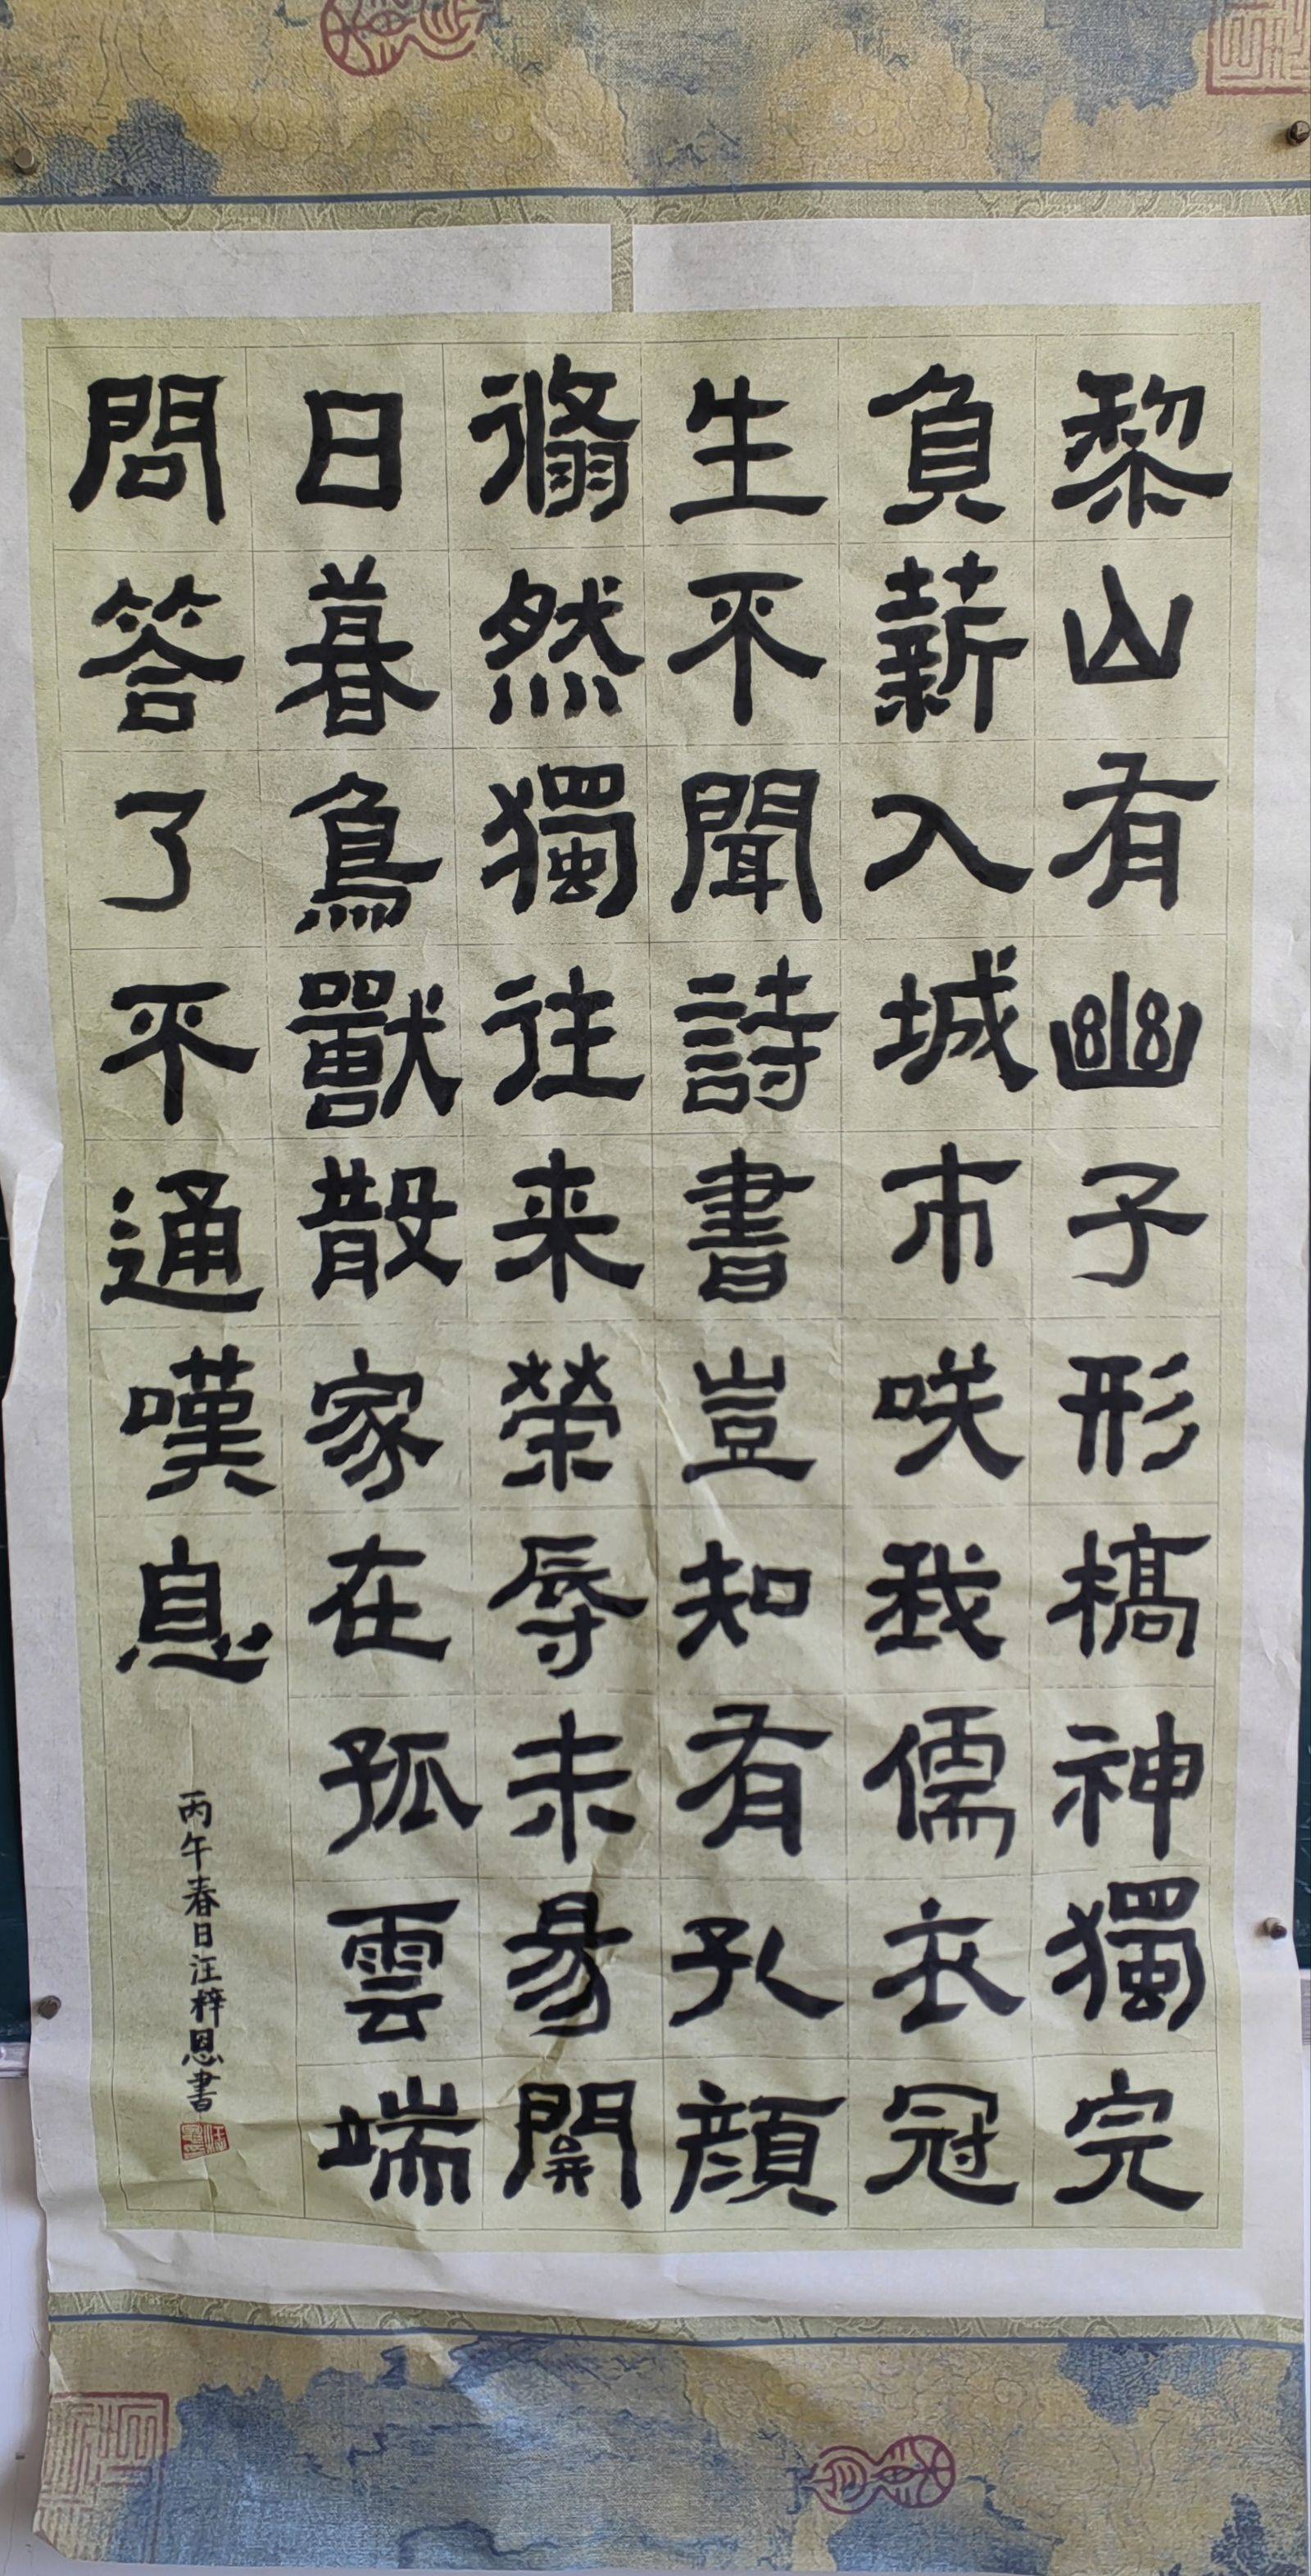 黎山有幽子形槁神獨完
負薪入城市咲我儒衣冠
生不聞詩書豈知有孔顏
翛然獨往来榮辱未易關
日暮鳥獸散家在孤雲端
問答了不通嘆息
丙午春日汪梓恩書